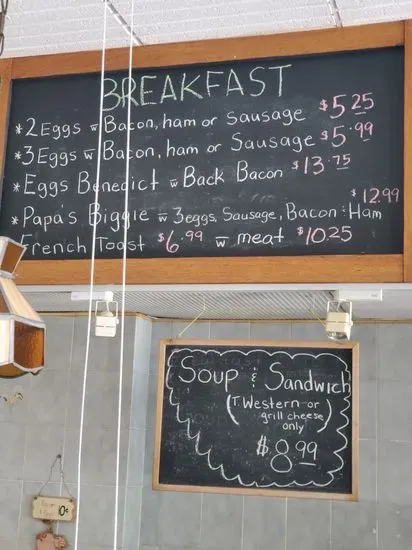 BREAKFAST
*2 Eggs w Bacon, ham or sausage $5.25
*3 Eggs w Bacon, ham or Sausage $5.99
*Eggs Benedict w Back Bacon $13.75
$12.99
*Papa's Biggie w 3 eggs, Sausage, Bacon & Ham
French Toast $6.99 w meat $10.25
Soup & Sandwich
(T. Western or
grill cheese
only)
$8.99
10¢